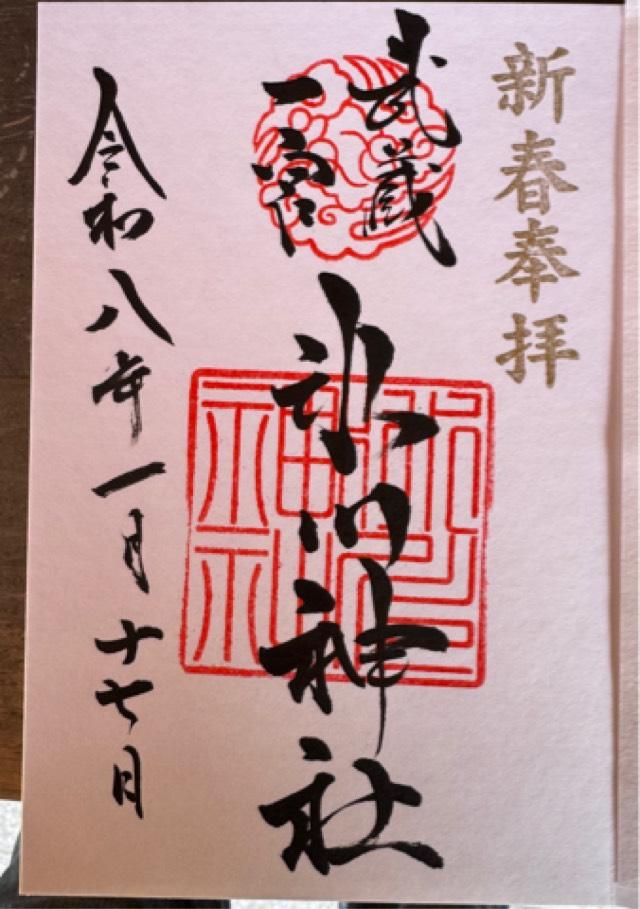 新春奉拝
武蔵
一宮
氷川神社
令和八年一月十七日